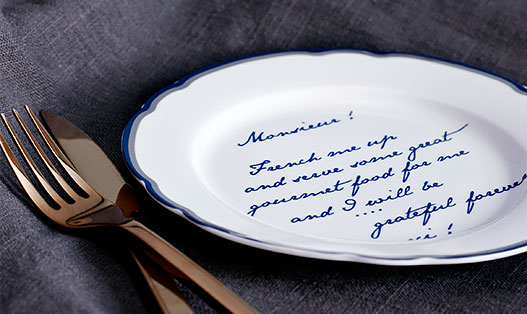 Monsieur!
French me up
and serve some great
gourmet food for me
and I will be
.... grateful forever
ci!